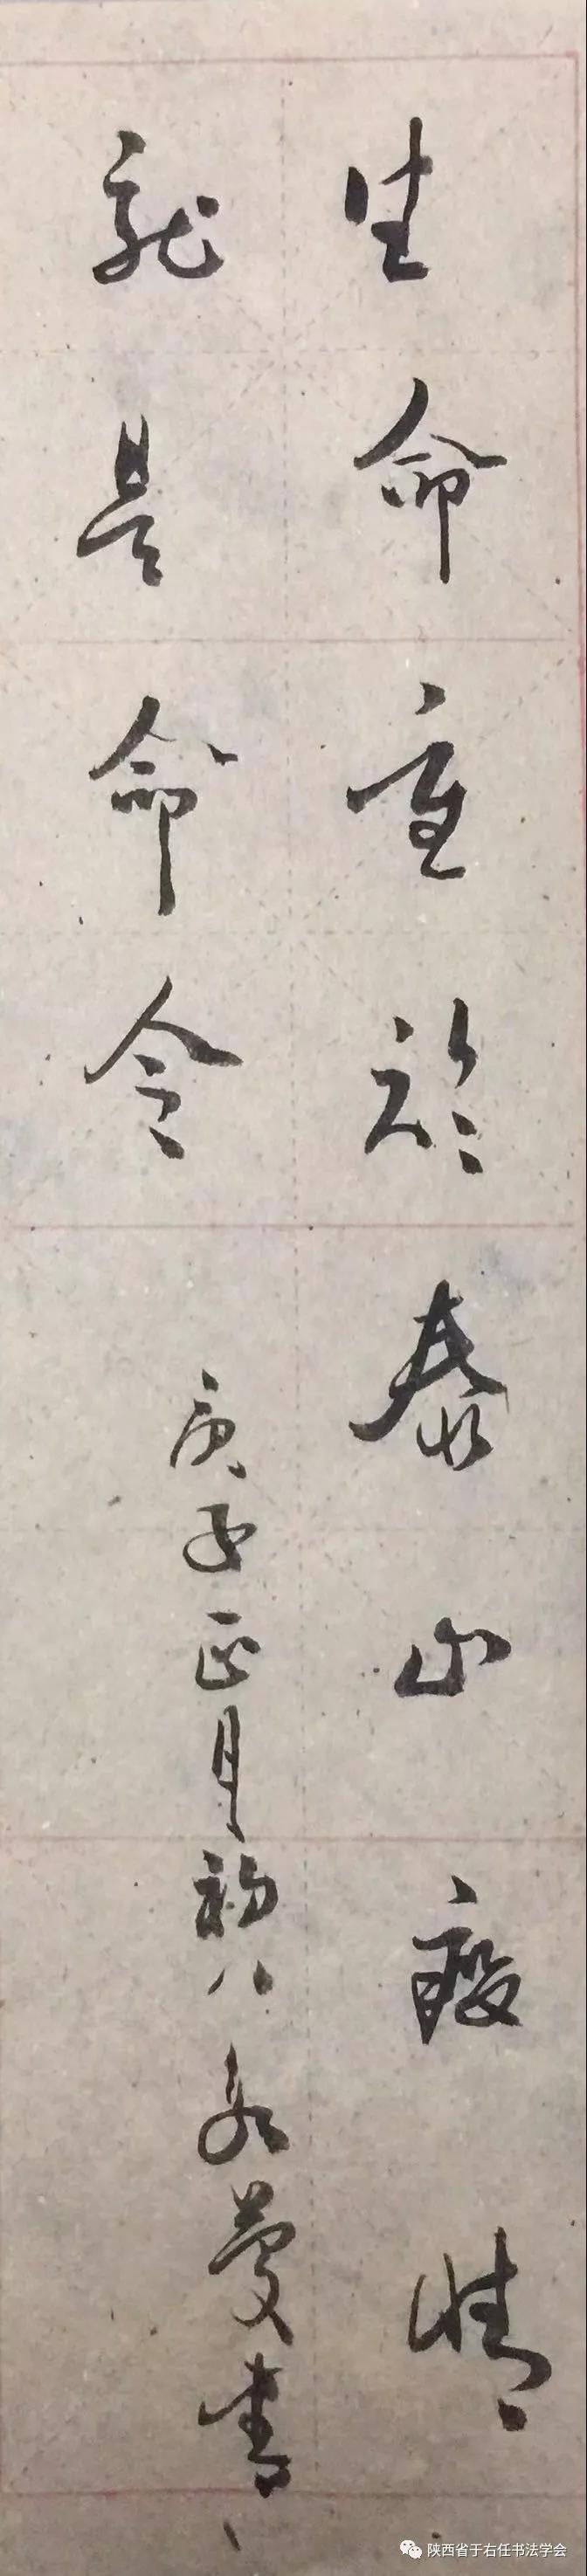 生命重於泰山疫情
就是命令
庚子正月初八永蔓書
陕西省于右任书法学会